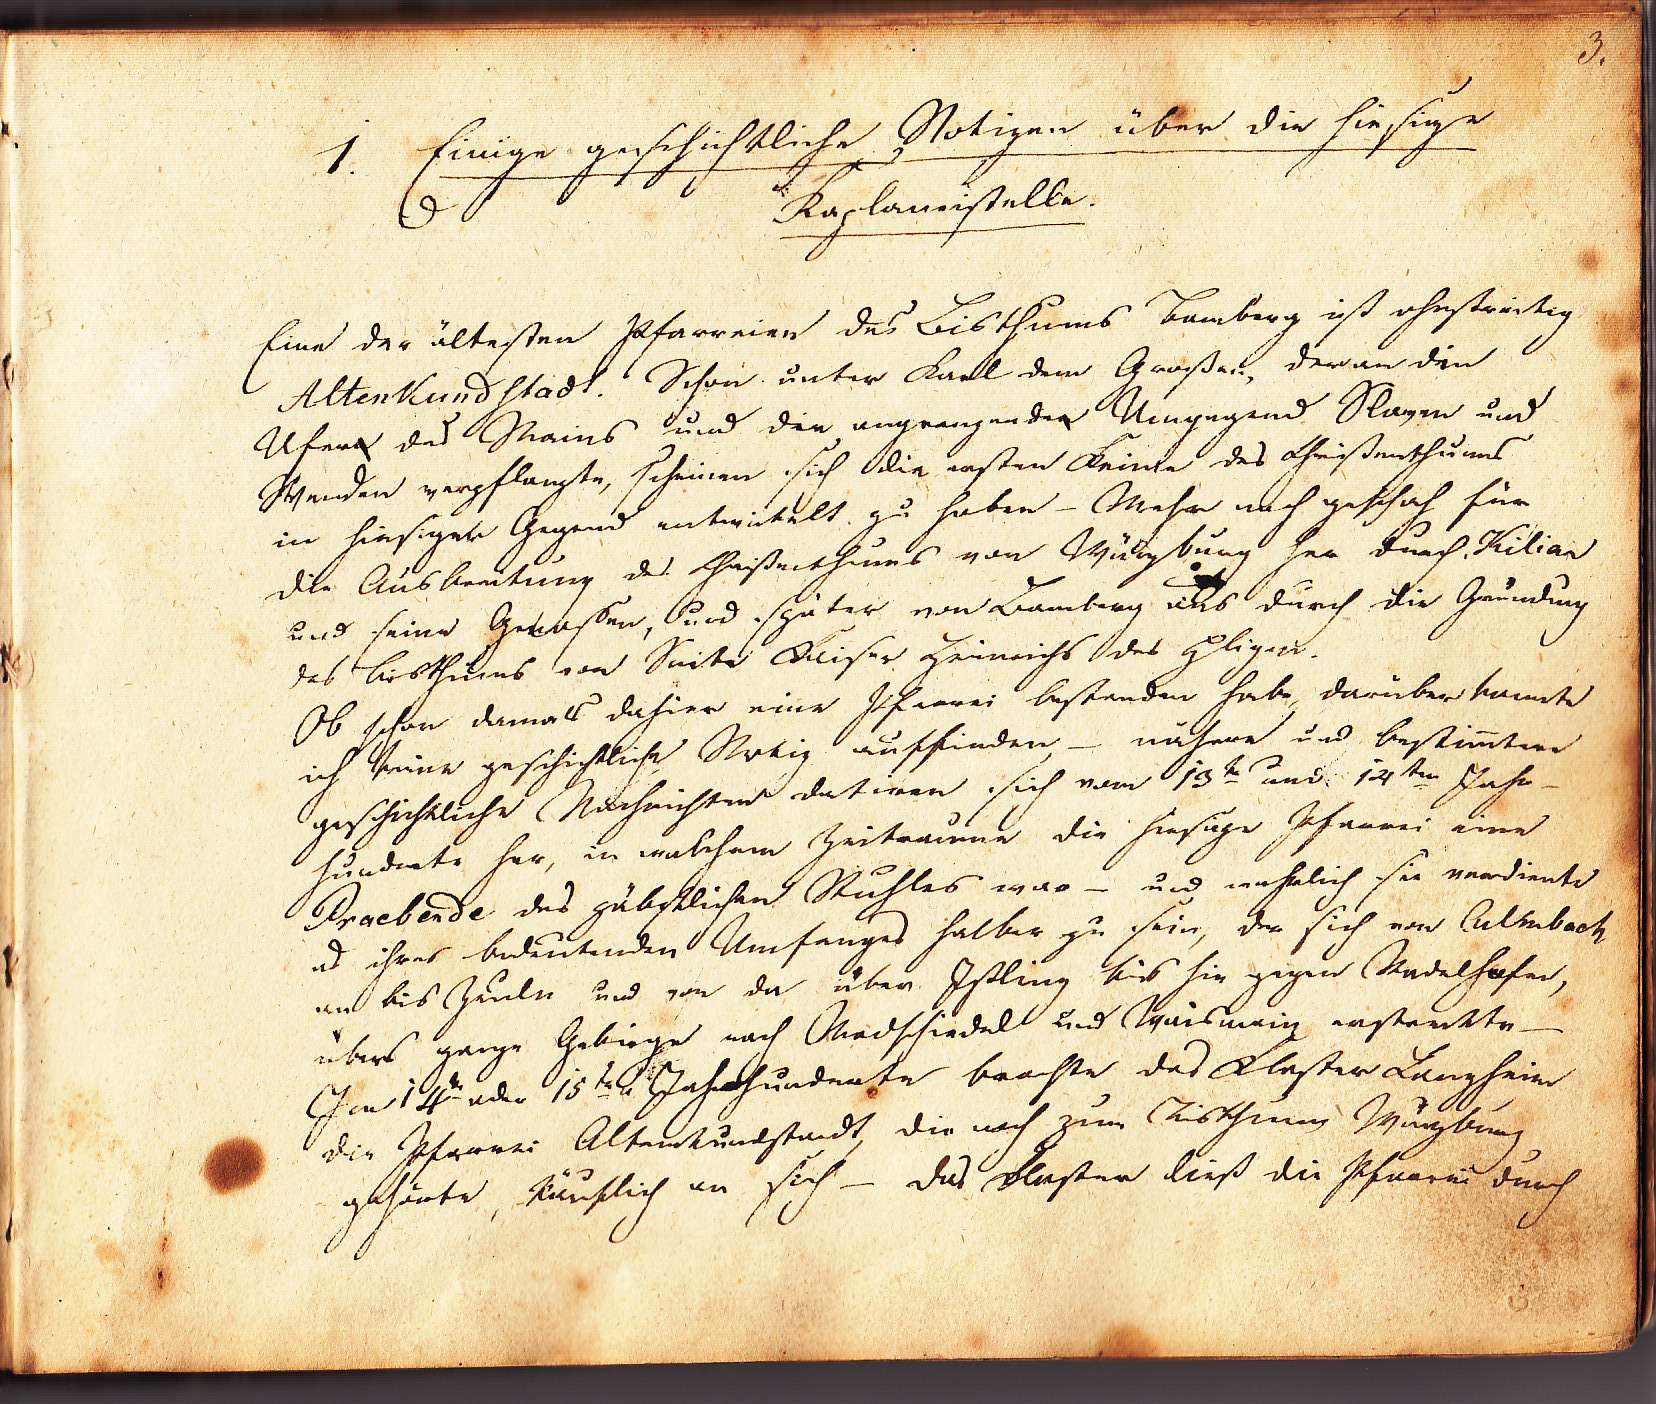 3.
1. Einige geschichtliche Notizen über die hiesige
Kaplaneistelle.
Eine der ältesten Pfarreien des Bisthums Bamberg ist ohnstreitig
Altenkundstadt. Schon unter Karl dem Großen, der an den
Ufern des Mains und der angrenzenden Umgegend Slaven und
Wenden verpflanzte, scheinen sich die ersten Keime des Christenthums
in hiesiger Gegend entwickelt zu haben – Mehr noch geschah für
die Ausbreitung des Christenthums von Würzburg her durch Kilian
und seine Genossen, und später von Bamberg aus durch die Gründung
des Bisthums von Seite Kaiser Heinrichs des Hligen.
Ob schon damals dahier eine Pfarrei bestanden habe, darüber konnte
ich keine geschichtliche Notiz auffinden – nähere und bestimmtere
geschichtliche Nachrichten datiren sich vom 13ten und 14ten Jahr-
hunderte her, in welchem Zeitraume die hiesige Pfarrei eine
Praebende des päbstlichen Stuhles war – und wahrlich sie verdiente
es ihres bedeutenden Umfanges halber zu sein, der sich von Culmbach
an bis Zeuln und von da über Isling bis hin gegen Stadelhofen,
übers ganze Gebirge nach Modschiedel und Waismain erstreckte –
Im 14ten oder 15ten Jahrhunderte brachte das Kloster Langheim
die Pfarrei Altenkundstadt, die noch zum Bisthum Würzburg
gehörte, käuflich an sich – das Kloster ließ die Pfarrei durch